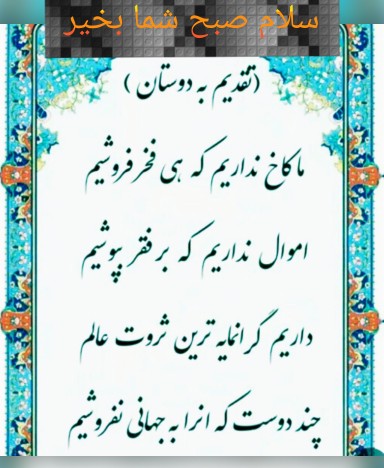 سلام صبح شما بخیر
(تقدیم به دوستان)
ما کاخ نداریم که هی فخر فروشیم
اموال نداریم که بر فقر بپوشیم
داریم گرانمایه ترین ثروت عالم
چند دوست که انرا به جهانی نفروشیم